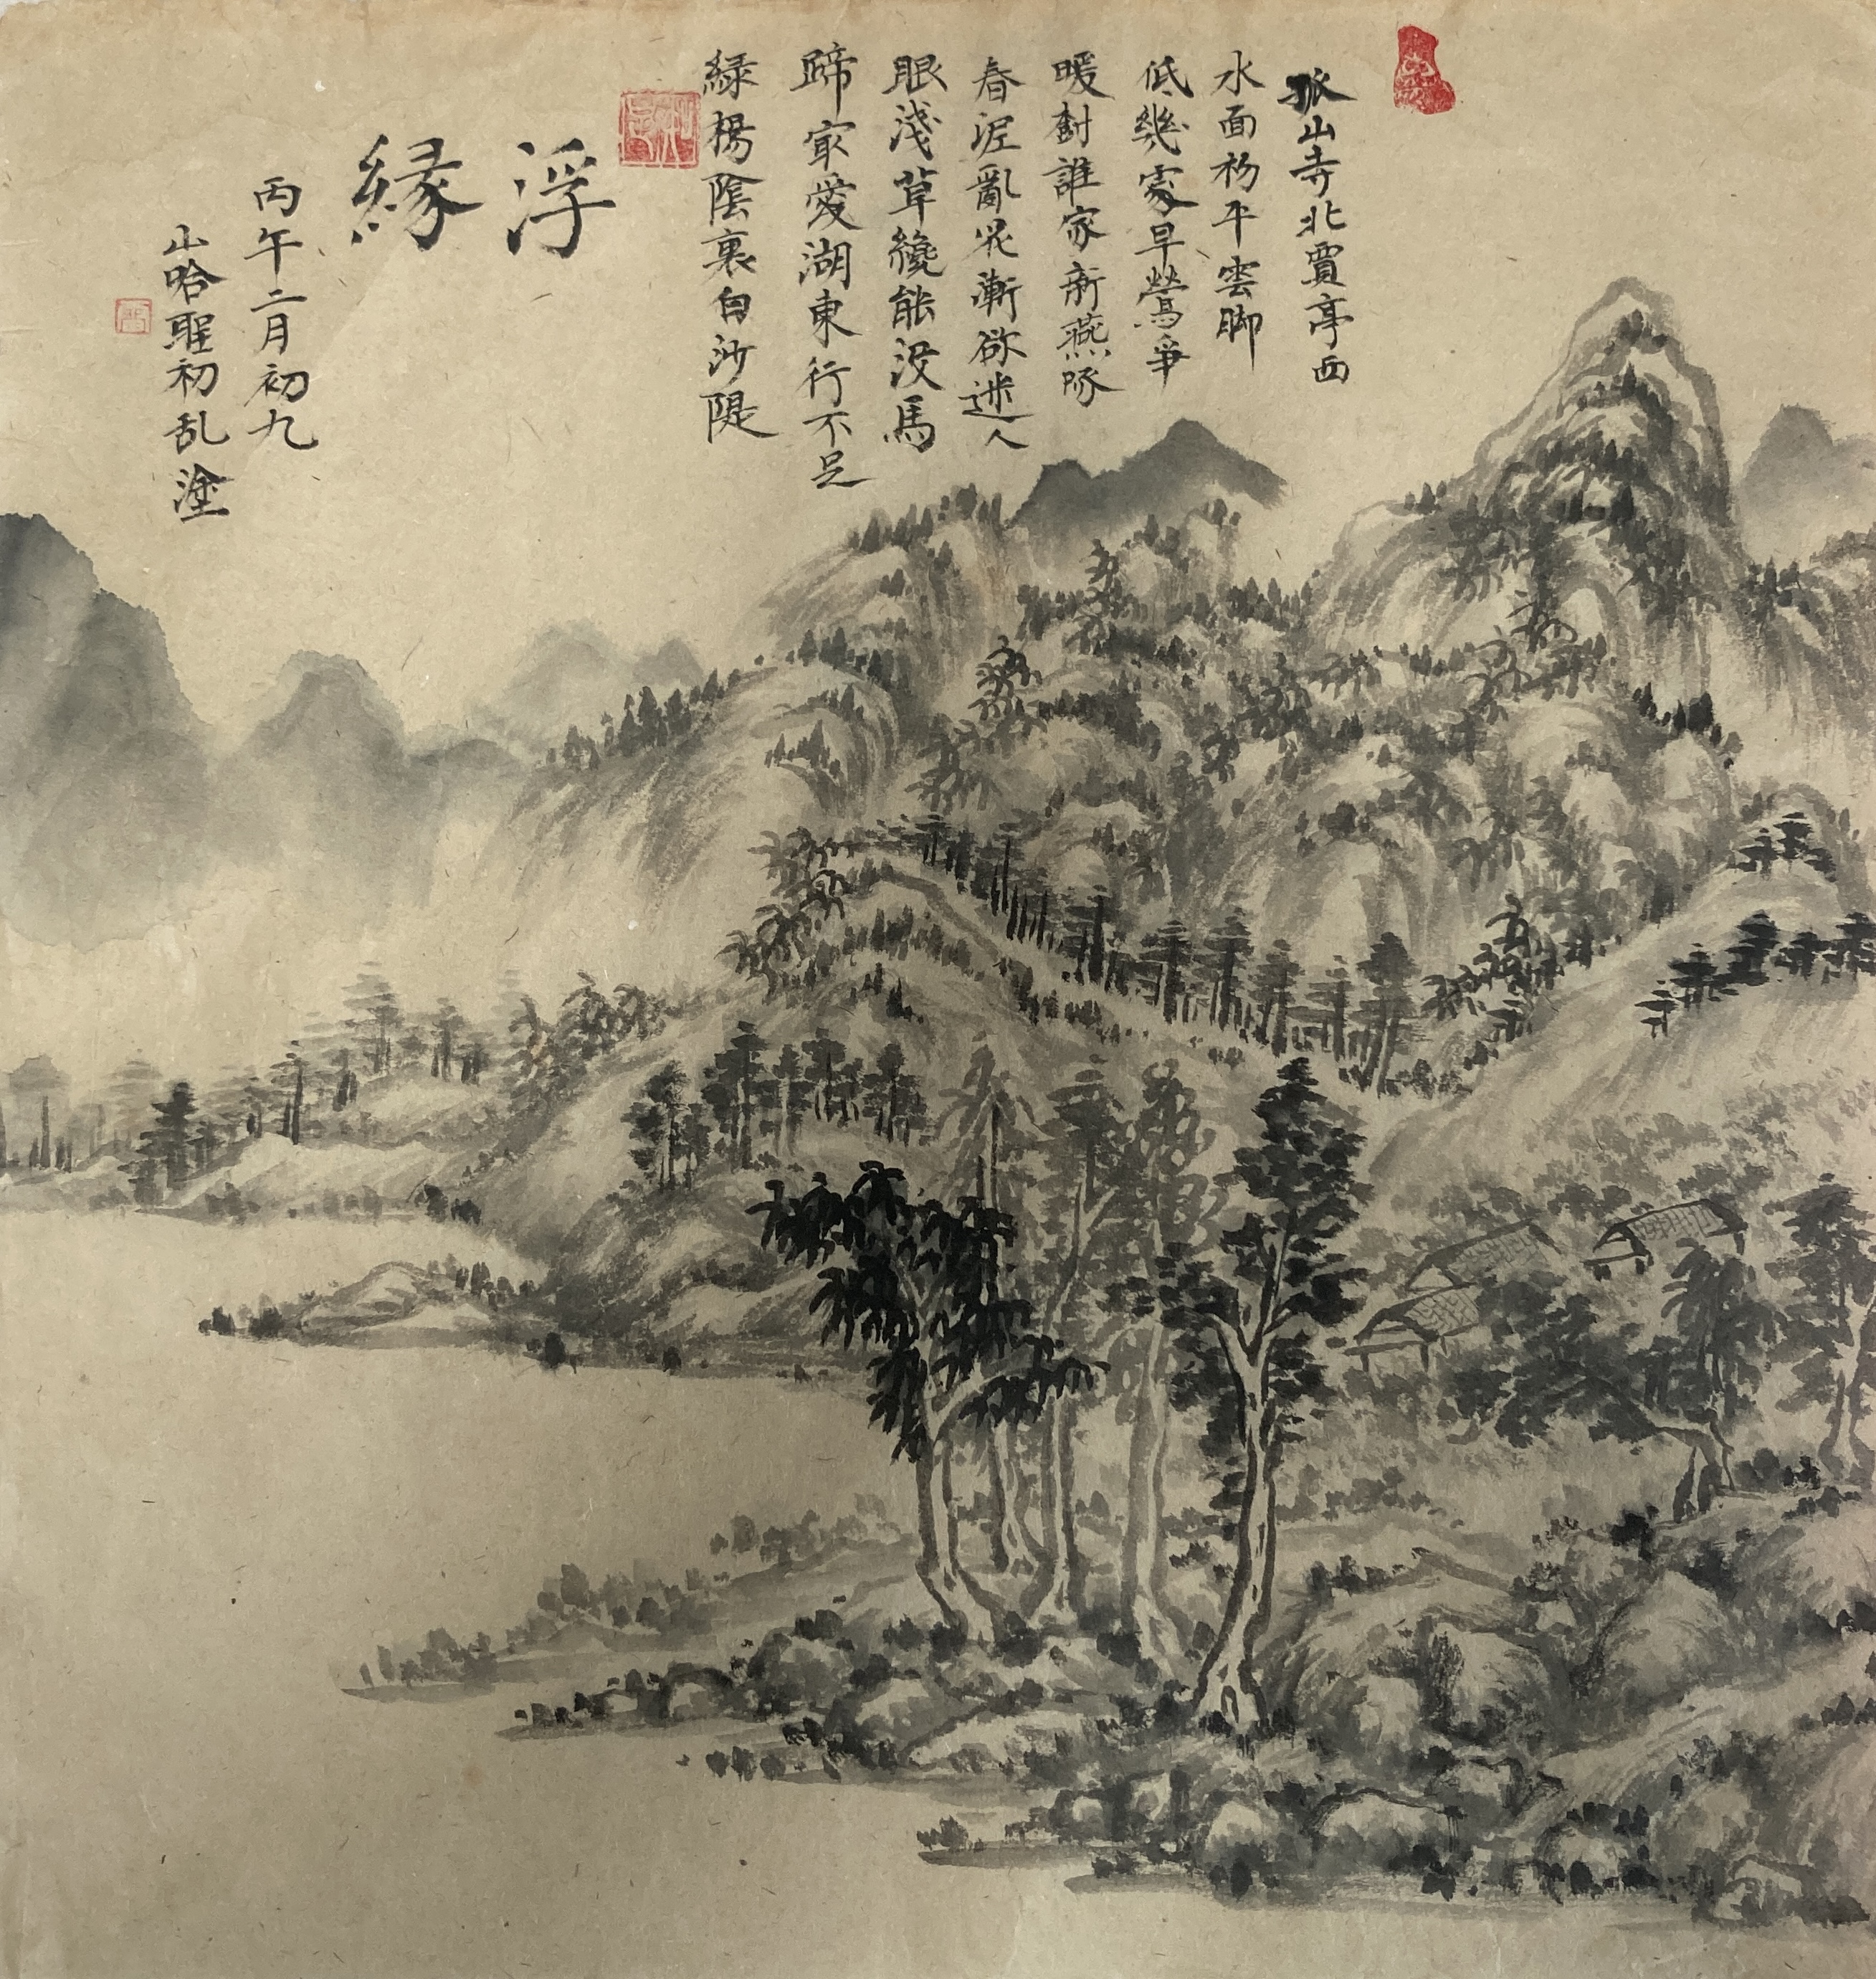 孤山寺北賈亭西
水面初平雲脚
低幾處早鶯爭
暖樹誰家新燕啄
春泥亂花漸欲迷人
眼淺草纔能没馬
蹄最愛湖東行不足
緑楊陰裏白沙隄
浮
緣
丙午二月初九
山哈聖初乱塗